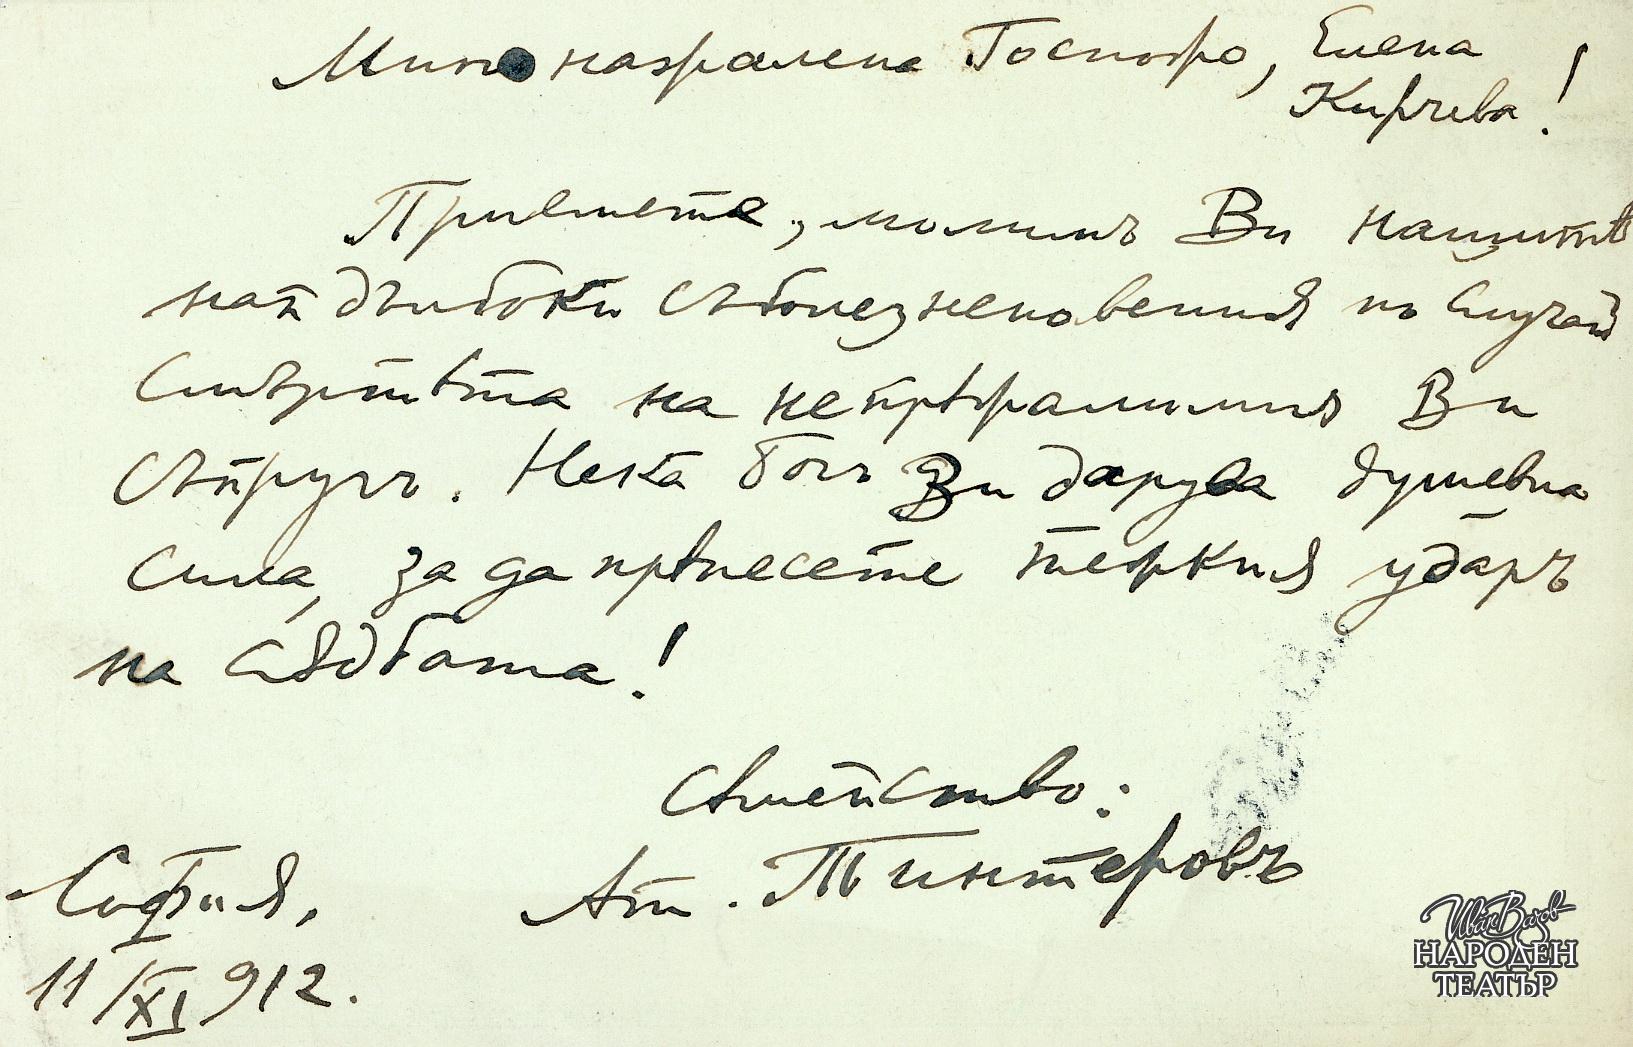 Многонажалена Госпожо, Елена
Кирчева!
Приемете, молимъ Ви нашитѣ
най дълбоки съболезненования по случай
смъртьта на непрѣжалимия Ви
съпругъ. Нека Богъ Ви дарува душевна
сила, за да прѣнесете тежкия ударъ
на сѫдбата!
Сѣмейство:
Ат. Тинтеровъ
София,
11/XI 912.
Иван Вазов
НАРОДЕН
ТЕАТЪР